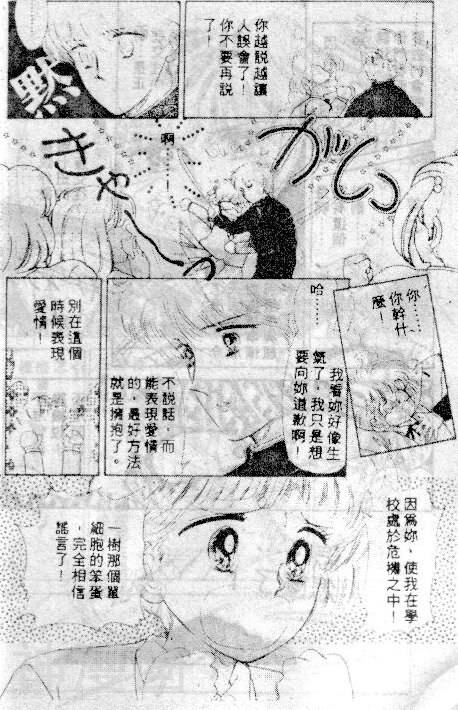 你越説越讓
人誤會了！
你不要再説
了！
默
啊………！
がしっ
きゃーっ
你……
你幹什
麼！
哈……
我看妳好像生
氣了，我只是想
要向妳道歉啊！
不說話，而
能表現愛情
的，最好方法
就是擁抱了。
別在這個
時候表現
愛情！
因為妳，使我在學
校處於危機之中！
一樹那個單
細胞的笨蛋
，完全相信
謠言了！